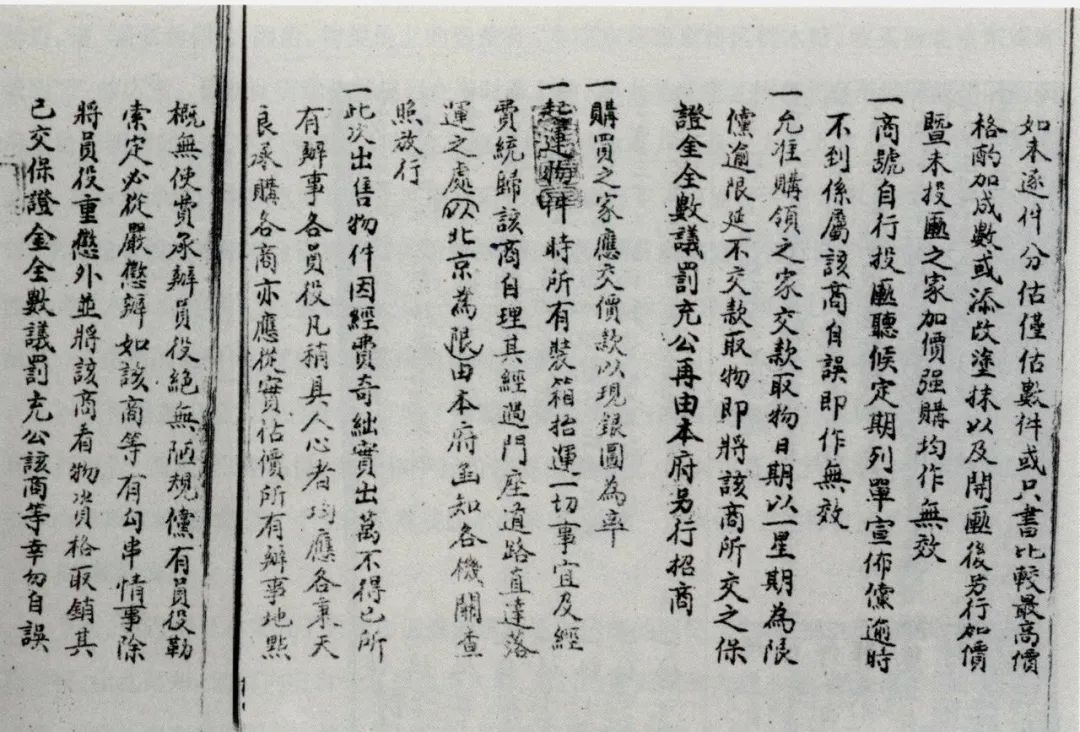 如未逐件分估僅估數件或只書比較最高價
格酌加成數或添改塗抹以及開匭後另行加價
暨未投匭之家加價强購均作無效
一商號自行投匭聽候定期列單宣佈儻逾時
不到係屬該商自誤即作無效
一允准購領之家交款取物日期以一星期為限
儻逾限延不交款取物即將該商所交之保
證金全數議罰充公再由本府另行招商
一購買之家應交價款以現銀圓為率
一起運物件時所有裝箱抬運一切事宜及經
費統歸該商自理其經過門座道路直達落
運之處以北京為限由本府函知各機關查
照放行
一此次出售物件因經費奇絀實出萬不得已所
有辦事各員役凡稍具人心者均應各秉天
良承購各商亦應從實估價所有辦事地點
概無使費承辦員役絕無陋規儻有員役勒
索定必從嚴懲辦如該商等有勾串情事除
將員役重懲外並將該商看物資格取銷其
已交保證金全數議罰充公該商等幸勿自誤